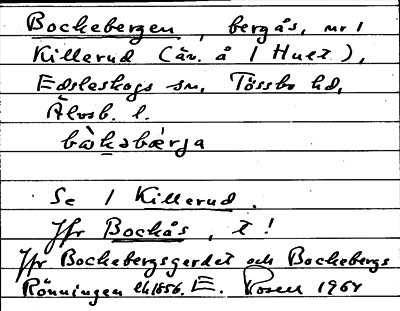 Bockebergen, bergås, nr 1
Killerud (äv. å 1 Huet),
Edsleskogs sn, Tössbo hd,
Älvsb. l.
bɷ̀kəbæ̀rja
Se 1 Killerud.
Jfr Bockås, t!
Jfr Bockebergsgerdet och Bockebergs
Rönningen lh 1856. E. Rosell 1964